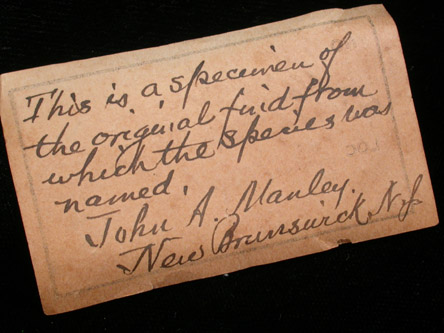 This is a specimen of
the original find from
which the species was
named.
John A. Manley.
New Brunswick N.J.